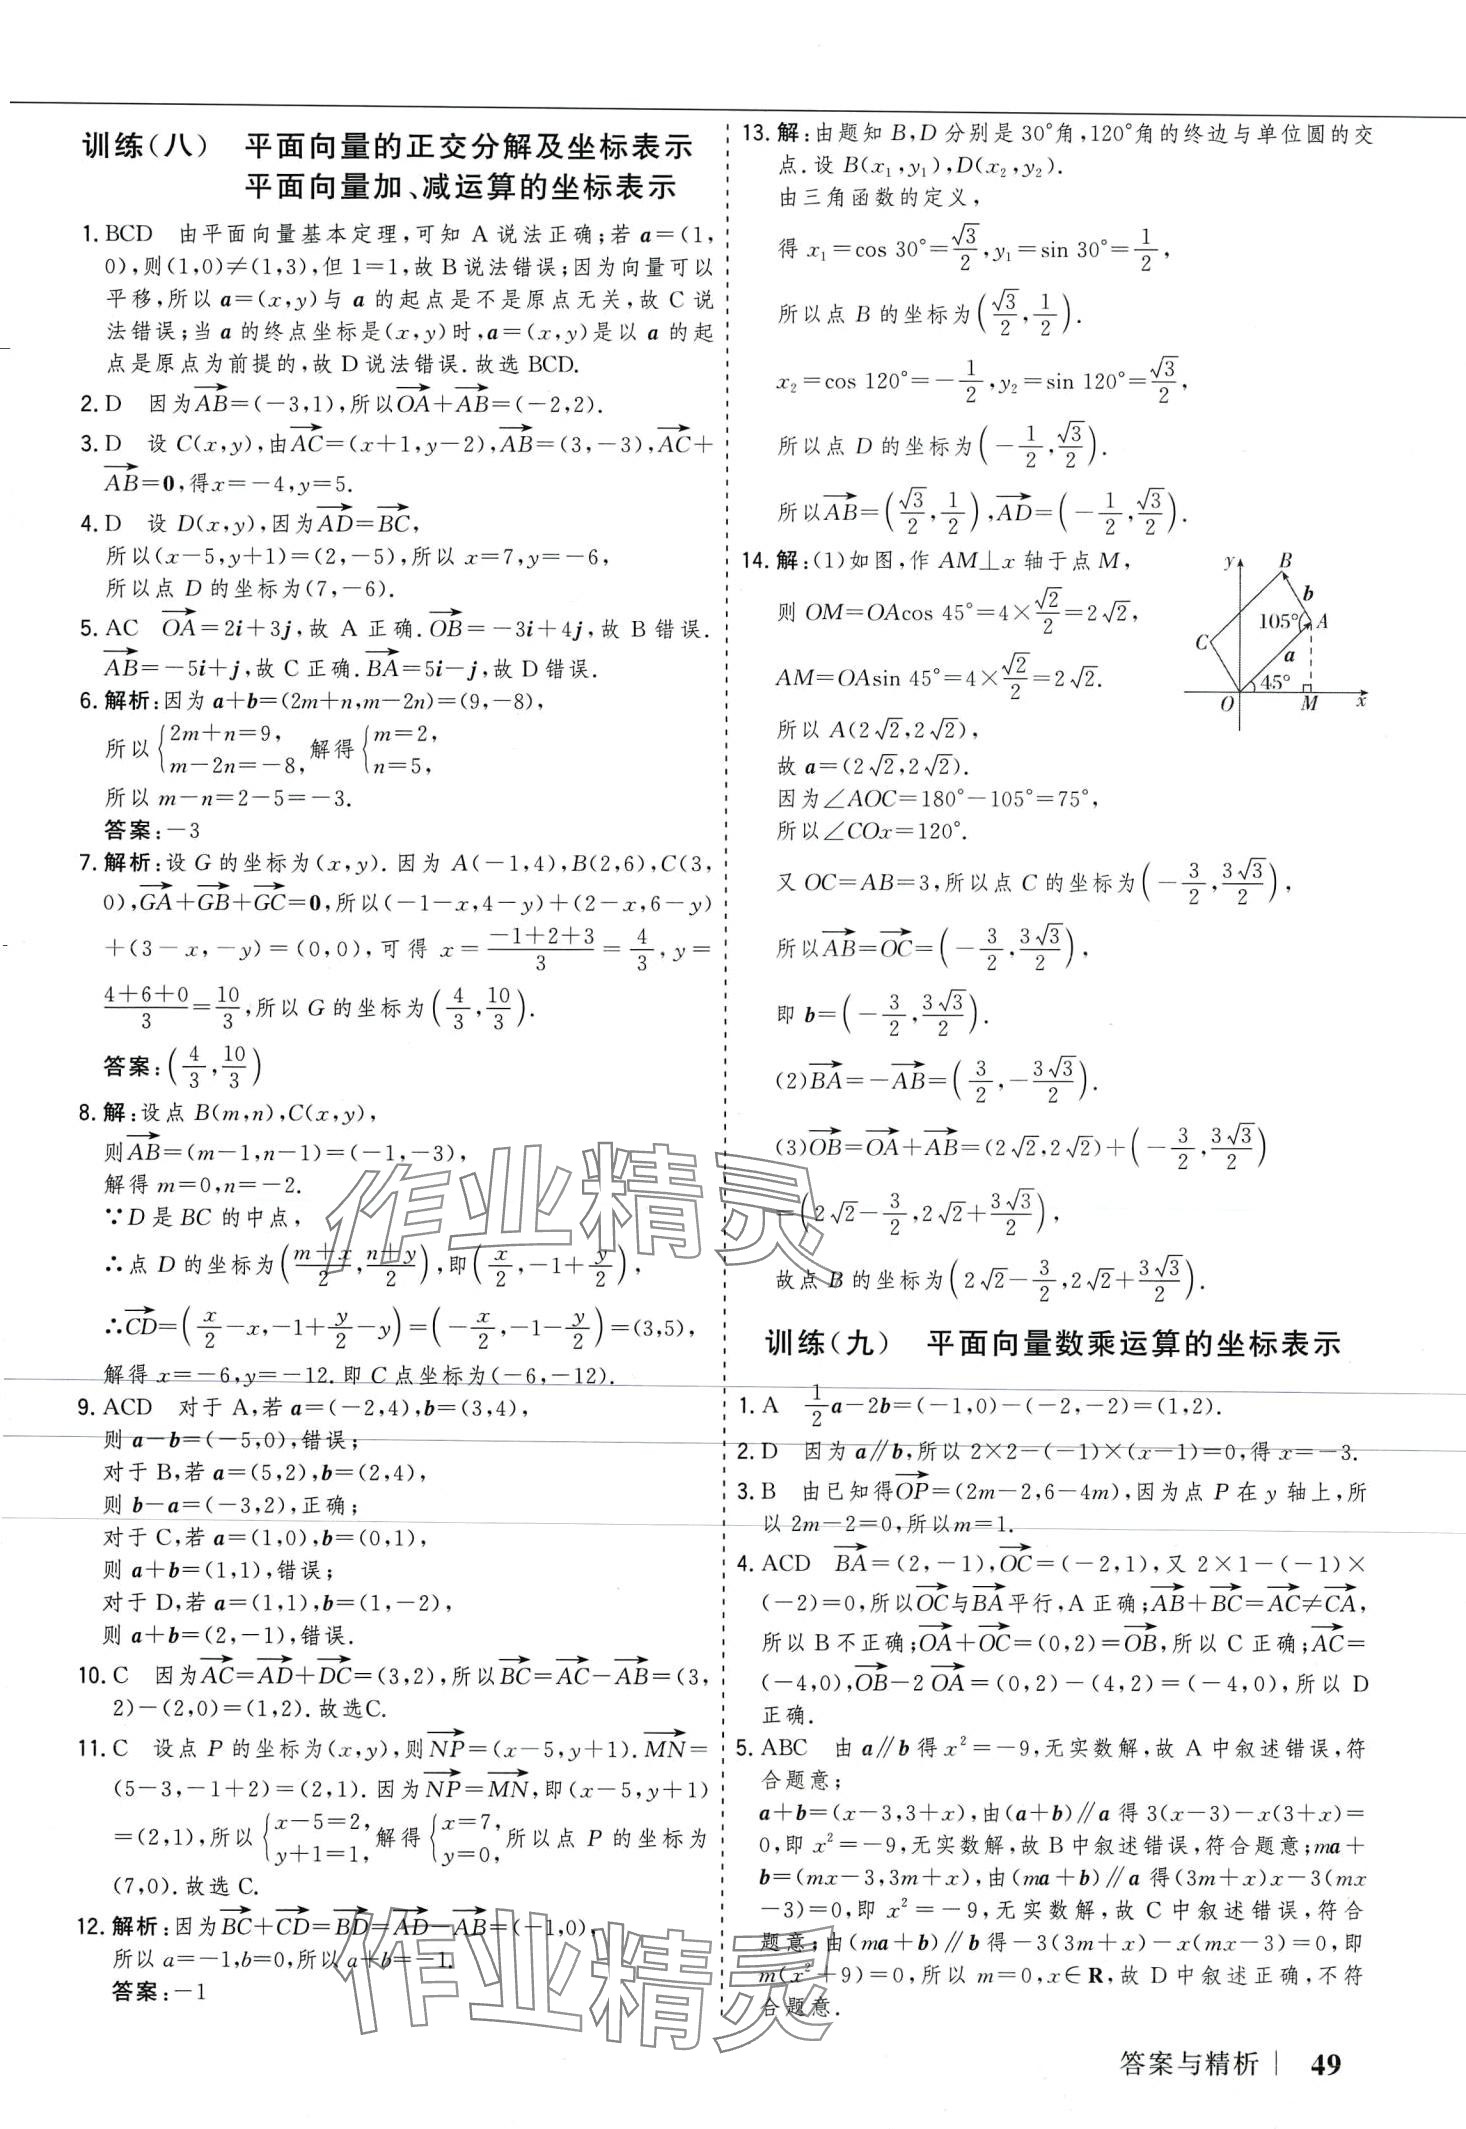 训练(八) 平面向量的正交分解及坐标表示
平面向量加、减运算的坐标表示
1. BCD 由平面向量基本定理,可知 A 说法正确;若 a=(1,
0),则(1,0)≠(1,3),但 1=1,故 B 说法错误;因为向量可以
平移,所以 a=(x,y)与 a 的起点是不是原点无关,故 C 说
法错误;当 a 的终点坐标是(x,y)时,a=(x,y)是以 a 的起
点是原点为前提的,故 D 说法错误.故选 BCD.
2. D 因为$\overrightarrow{AB}$=(-3,1),所以$\overrightarrow{OA}$+$\overrightarrow{AB}$=(-2,2).
3. D 设 C(x,y),由$\overrightarrow{AC}$=(x+1,y-2),$\overrightarrow{AB}$=(3,-3),$\overrightarrow{AC}$+
$\overrightarrow{AB}$=0,得x=-4,y=5.
4. D 设 D(x,y),因为$\overrightarrow{AD}$=$\overrightarrow{BC}$,
所以(x-5,y+1)=(2,-5),所以 x=7,y=-6,
所以点 D 的坐标为(7,-6).
5. AC $\overrightarrow{OA}$=2i+3j,故 A 正确.$\overrightarrow{OB}$=-3i+4j,故 B 错误.
$\overrightarrow{AB}$=-5i+j,故 C 正确.$\overrightarrow{BA}$=5i-j,故 D 错误.
6. 解析:因为 a+b=(2m+n,m-2n)=(9,-8),
所以$\begin{cases}2m+n=9,\\m-2n=-8,\end{cases}$解得$\begin{cases}m=2,\\n=5,\end{cases}$
所以 m-n=2-5=-3.
答案:-3
7. 解析:设 G 的坐标为(x,y).因为 A(-1,4),B(2,6),C(3,
0),$\overrightarrow{GA}$+$\overrightarrow{GB}$+$\overrightarrow{GC}$=0,所以(-1-x,4-y)+(2-x,6-y)
+(3-x,-y)=(0,0),可得 x=$\frac{-1+2+3}{3}$=$\frac{4}{3}$,y=
$\frac{4+6+0}{3}$=$\frac{10}{3}$,所以 G 的坐标为$(\frac{4}{3},\frac{10}{3})$.
答案:$(\frac{4}{3},\frac{10}{3})$
8. 解:设点 B(m,n),C(x,y),
则$\overrightarrow{AB}$=(m-1,n-1)=(-1,-3),
解得 m=0,n=-2.
∵D 是 BC 的中点,
∴点 D 的坐标为$(\frac{m+x}{2},\frac{n+y}{2})$,即$(\frac{x}{2},-1+\frac{y}{2})$,
∴$\overrightarrow{CD}$=$(\frac{x}{2}-x,-1+\frac{y}{2}-y)$=$(-\frac{x}{2},-1-\frac{y}{2})$=(3,5),
解得 x=-6,y=-12.即 C 点坐标为(-6,-12).
9. ACD 对于 A,若 a=(-2,4),b=(3,4),
则 a-b=(-5,0),错误;
对于 B,若 a=(5,2),b=(2,4),
则 b-a=(-3,2),正确;
对于 C,若 a=(1,0),b=(0,1),
则 a+b=(1,1),错误;
对于 D,若 a=(1,1),b=(1,-2),
则 a+b=(2,-1),错误.
10. C 因为$\overrightarrow{AC}$=$\overrightarrow{AD}$+$\overrightarrow{DC}$=(3,2),所以$\overrightarrow{BC}$=$\overrightarrow{AC}$-$\overrightarrow{AB}$=(3,
2)-(2,0)=(1,2).故选C.
11. C 设点 P 的坐标为(x,y),则$\overrightarrow{NP}$=(x-5,y+1).$\overrightarrow{MN}$=
(5-3,-1+2)=(2,1).因为$\overrightarrow{NP}$=$\overrightarrow{MN}$,即(x-5,y+1)
=(2,1),所以$\begin{cases}x-5=2,\\y+1=1,\end{cases}$解得$\begin{cases}x=7,\\y=0,\end{cases}$所以点 P 的坐标为
(7,0).故选 C.
12. 解析:因为$\overrightarrow{BC}$+$\overrightarrow{CD}$=$\overrightarrow{BD}$=$\overrightarrow{AD}$-$\overrightarrow{AB}$=(-1,0),
所以 a=-1,b=0,所以 a+b=-1.
答案:-1
13. 解:由题知 B,D 分别是 30°角,120°角的终边与单位圆的交
点.设 B(x₁,y₁),D(x₂,y₂).
由三角函数的定义,
得 x₁=cos 30°=$\frac{\sqrt{3}}{2}$,y₁=sin 30°=$\frac{1}{2}$,
所以点 B 的坐标为$(\frac{\sqrt{3}}{2},\frac{1}{2})$.
x₂=cos 120°=-$\frac{1}{2}$,y₂=sin 120°=$\frac{\sqrt{3}}{2}$,
所以点 D 的坐标为$(-\frac{1}{2},\frac{\sqrt{3}}{2})$.
所以$\overrightarrow{AB}$=$(\frac{\sqrt{3}}{2},\frac{1}{2})$,$\overrightarrow{AD}$=$(-\frac{1}{2},\frac{\sqrt{3}}{2})$.
14. 解:(1)如图,作 AM⊥x 轴于点 M,
则 OM=OAcos 45°=4×$\frac{\sqrt{2}}{2}$=2$\sqrt{2}$,
AM=OAsin 45°=4×$\frac{\sqrt{2}}{2}$=2$\sqrt{2}$.
所以 A(2$\sqrt{2}$,2$\sqrt{2}$),
故 a=(2$\sqrt{2}$,2$\sqrt{2}$).
因为∠AOC=180°-105°=75°,
所以∠COx=120°.
y B b 105° A C a 45° O M x
又 OC=AB=3,所以点 C 的坐标为$(-\frac{3}{2},\frac{3\sqrt{3}}{2})$,
所以$\overrightarrow{AB}$=$\overrightarrow{OC}$=$(-\frac{3}{2},\frac{3\sqrt{3}}{2})$,
即 b=$(-\frac{3}{2},\frac{3\sqrt{3}}{2})$.
(2)$\overrightarrow{BA}$=-$\overrightarrow{AB}$=$(\frac{3}{2},-\frac{3\sqrt{3}}{2})$.
(3)$\overrightarrow{OB}$=$\overrightarrow{OA}$+$\overrightarrow{AB}$=(2$\sqrt{2}$,2$\sqrt{2}$)+$(-\frac{3}{2},\frac{3\sqrt{3}}{2})$
=$(2\sqrt{2}-\frac{3}{2},2\sqrt{2}+\frac{3\sqrt{3}}{2})$,
故点 B 的坐标为$(2\sqrt{2}-\frac{3}{2},2\sqrt{2}+\frac{3\sqrt{3}}{2})$.
训练(九) 平面向量数乘运算的坐标表示
1. A $\frac{1}{2}$a-2b=(-1,0)-(-2,-2)=(1,2).
2. D 因为 a∥b,所以 2×2-(-1)×(x-1)=0,得 x=-3.
3. B 由已知得$\overrightarrow{OP}$=(2m-2,6-4m),因为点 P 在 y 轴上,所
以 2m-2=0,所以m=1.
4. ACD $\overrightarrow{BA}$=(2,-1),$\overrightarrow{OC}$=(-2,1),又 2×1-(-1)×
(-2)=0,所以$\overrightarrow{OC}$与$\overrightarrow{BA}$平行,A 正确;$\overrightarrow{AB}$+$\overrightarrow{BC}$=$\overrightarrow{AC}$≠$\overrightarrow{CA}$,
所以 B 不正确;$\overrightarrow{OA}$+$\overrightarrow{OC}$=(0,2)=$\overrightarrow{OB}$,所以 C 正确;$\overrightarrow{AC}$=
(-4,0),$\overrightarrow{OB}$-2$\overrightarrow{OA}$=(0,2)-(4,2)=(-4,0),所以 D
正确.
5. ABC 由 a∥b 得 x²=-9,无实数解,故 A 中叙述错误,符
合题意;
a+b=(x-3,3+x),由(a+b)∥a 得 3(x-3)-x(3+x)=
0,即 x²=-9,无实数解,故 B 中叙述错误,符合题意;ma+
b=(mx-3,3m+x),由(ma+b)∥a 得(3m+x)x-3(mx
-3)=0,即 x²=-9,无实数解,故 C 中叙述错误,符合
题意;由(ma+b)∥b 得-3(3m+x)-x(mx-3)=0,即
m(x²+9)=0,所以 m=0,x∈R,故 D 中叙述正确,不符
合题意.
作业精灵
作业精灵
答案与精析 | 49